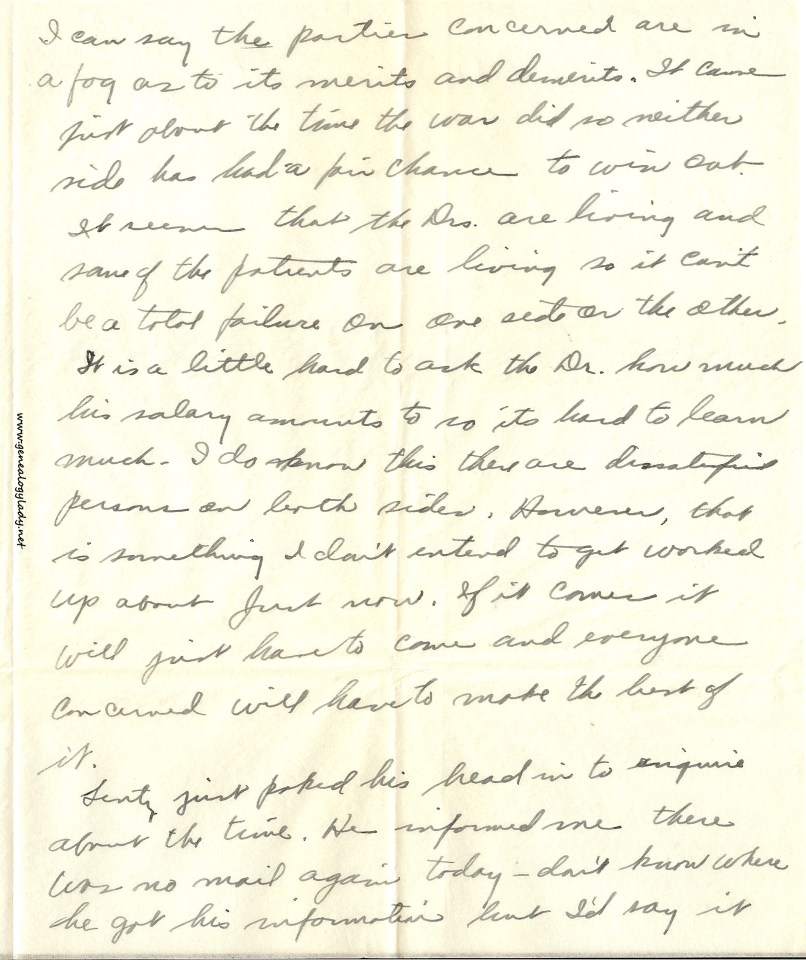 I can say the parties concerned are in
a fog as to its merits and demerits. It came
just about the time the war did so neither
side has had a fair chance to win out.
It seems that the Drs. are living and
some of the patients are living so it can't
be a total failure on one side or the other.
It is a little hard to ask the Dr. how much
his salary amounts to so its hard to learn
much - I do know this there are dissatisfied
persons on both sides. However, that
is something I don't intend to get worked
up about just now. If it comes it
will just have to come and everyone
concerned will have to make the best of
it.
just poked his head in to enquire
about the time. He informed me there
was no mail again today - don't know where
he got his information but I'd say it
www.genealogylady.net